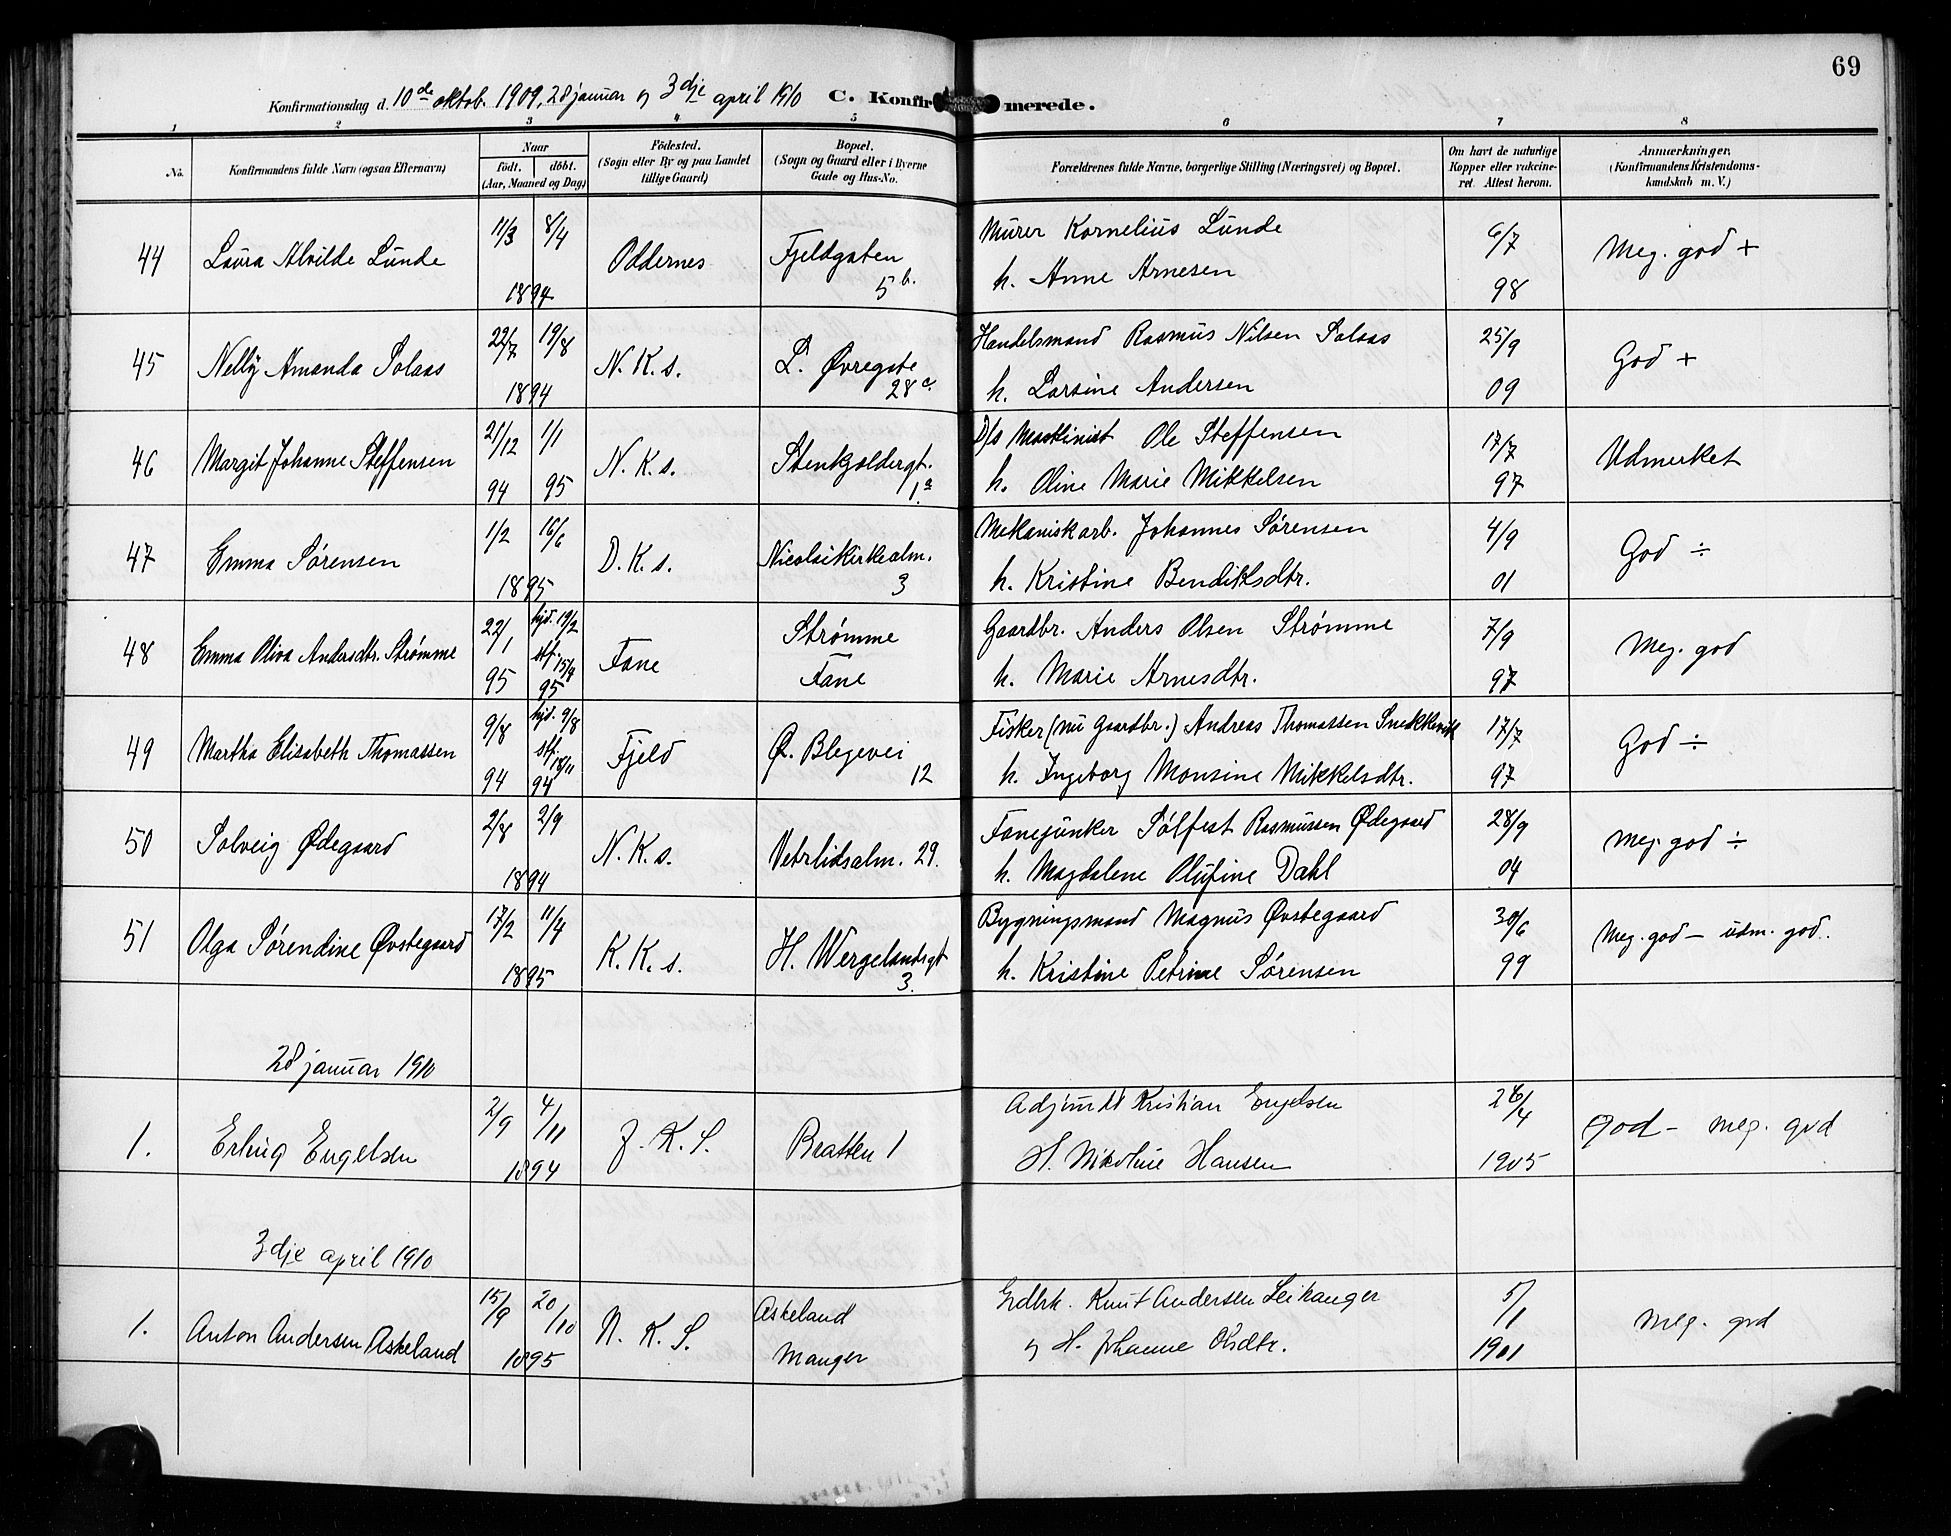 69
Konfirmationsdag d. 10de oktob. 1909, 28 januar og 3dje april 1910 C. Konfirmerede.
1 2 3 4 5 6 7 8
No.
Konfirmandens fulde Navn (ogsaa Efternavn)
Naar
födt. döbt.
(Aar, Maaned og Dag)
Födested.
(Sogn eller By og paa Landet
tillige Gaard)
Bopæl.
(Sogn og Gaard eller i Byerne
Gade og Hus-No.
Forældrenes fulde Navne, borgerlige Stilling (Næringsvei) og Bopæl.
Om havt de naturlige
Kopper eller vakcine-
ret. Attest herom.
Anmærkninger,
(Konfirmandens Kristendoms-
kundskab m. V.)
44 Laura Alvilde Lunde 11/3 8/4 1894 Oddernes Fjeldgaten 5 b.
Murer Kornelius Lunde
h. Anne Arnesen
6/7 98 Meg. god +
45 Nelly Amanda Solaas 22/7 19/8 1894 N. K. s. L. Øvregate 28 c.
Handelsmand Rasmus Nilsen Solaas
h. Larsine Andersen
25/9 09 God +
46 Margit Johanne Steffensen 21/12 94 1/1 95 N. K. s. Stenkjeldergt. 1.a
D/s Maskinist Ole Steffensen
h. Oline Marie Mikkelsen
17/7 97 Udmerket
47 Emma Sørensen 1/2 16/6 1895 D. K. s. Nicolaikirkealm. 3
Mekaniskarb. Johannes Sørensen
h. Kristine Bendiktsdtr.
4/9 01 God ÷
48 Emma Oliva Andersdtr. Strømme 22/1 95 hjd. 19/2 stf. 15/4 95 Fane Strømme Fane
Gaardbr. Anders Olsen Strømme
h. Marie Arnesdtr.
7/9 97 Meg. god
49 Martha Elisabeth Thomassen 9/8 94 hjd. 9/8 stf. 18/11 94 Fjeld Ø. Blegevei 12
Fisker (nu Gaardbr.) Andreas Thomassen Snekkevik
h. Ingeborg Monsine Mikkelsdtr.
17/7 97 God ÷
50 Solveig Ødegaard 2/8 2/9 1894 N. K. s. Vetrlidsalm. 29.
Fanejunker Sølfest Rasmussen Ødegaard
h. Magdalene Olufine Dahl
28/9 04 Meg. god ÷
51 Olga Sørendine Øvstegaard 17/2 11/4 1895 K. K. s. H. Wergelandsgt 3.
Bygningsmand Magnus Øvstegaard
h. Kristine Petrine Sørensen
30/6 99 Meg. god – udm. god.
28 januar 1910
1. Erling Engelsen 2/9 4/11 1894 J. K. S. Bratten 1
Adjunkt Kristian Engelsen
H. Nikoline Hansen
26/4 1905 God – meg. god
3dje april 1910
1. Anton Andersen Askeland 15/9 20/10 1895 N. K. S. Askeland Manger
Grdbrk. Knut Andersen Leikanger
og H. Johanne Olsdtr.
5/1 1901 Meg. god